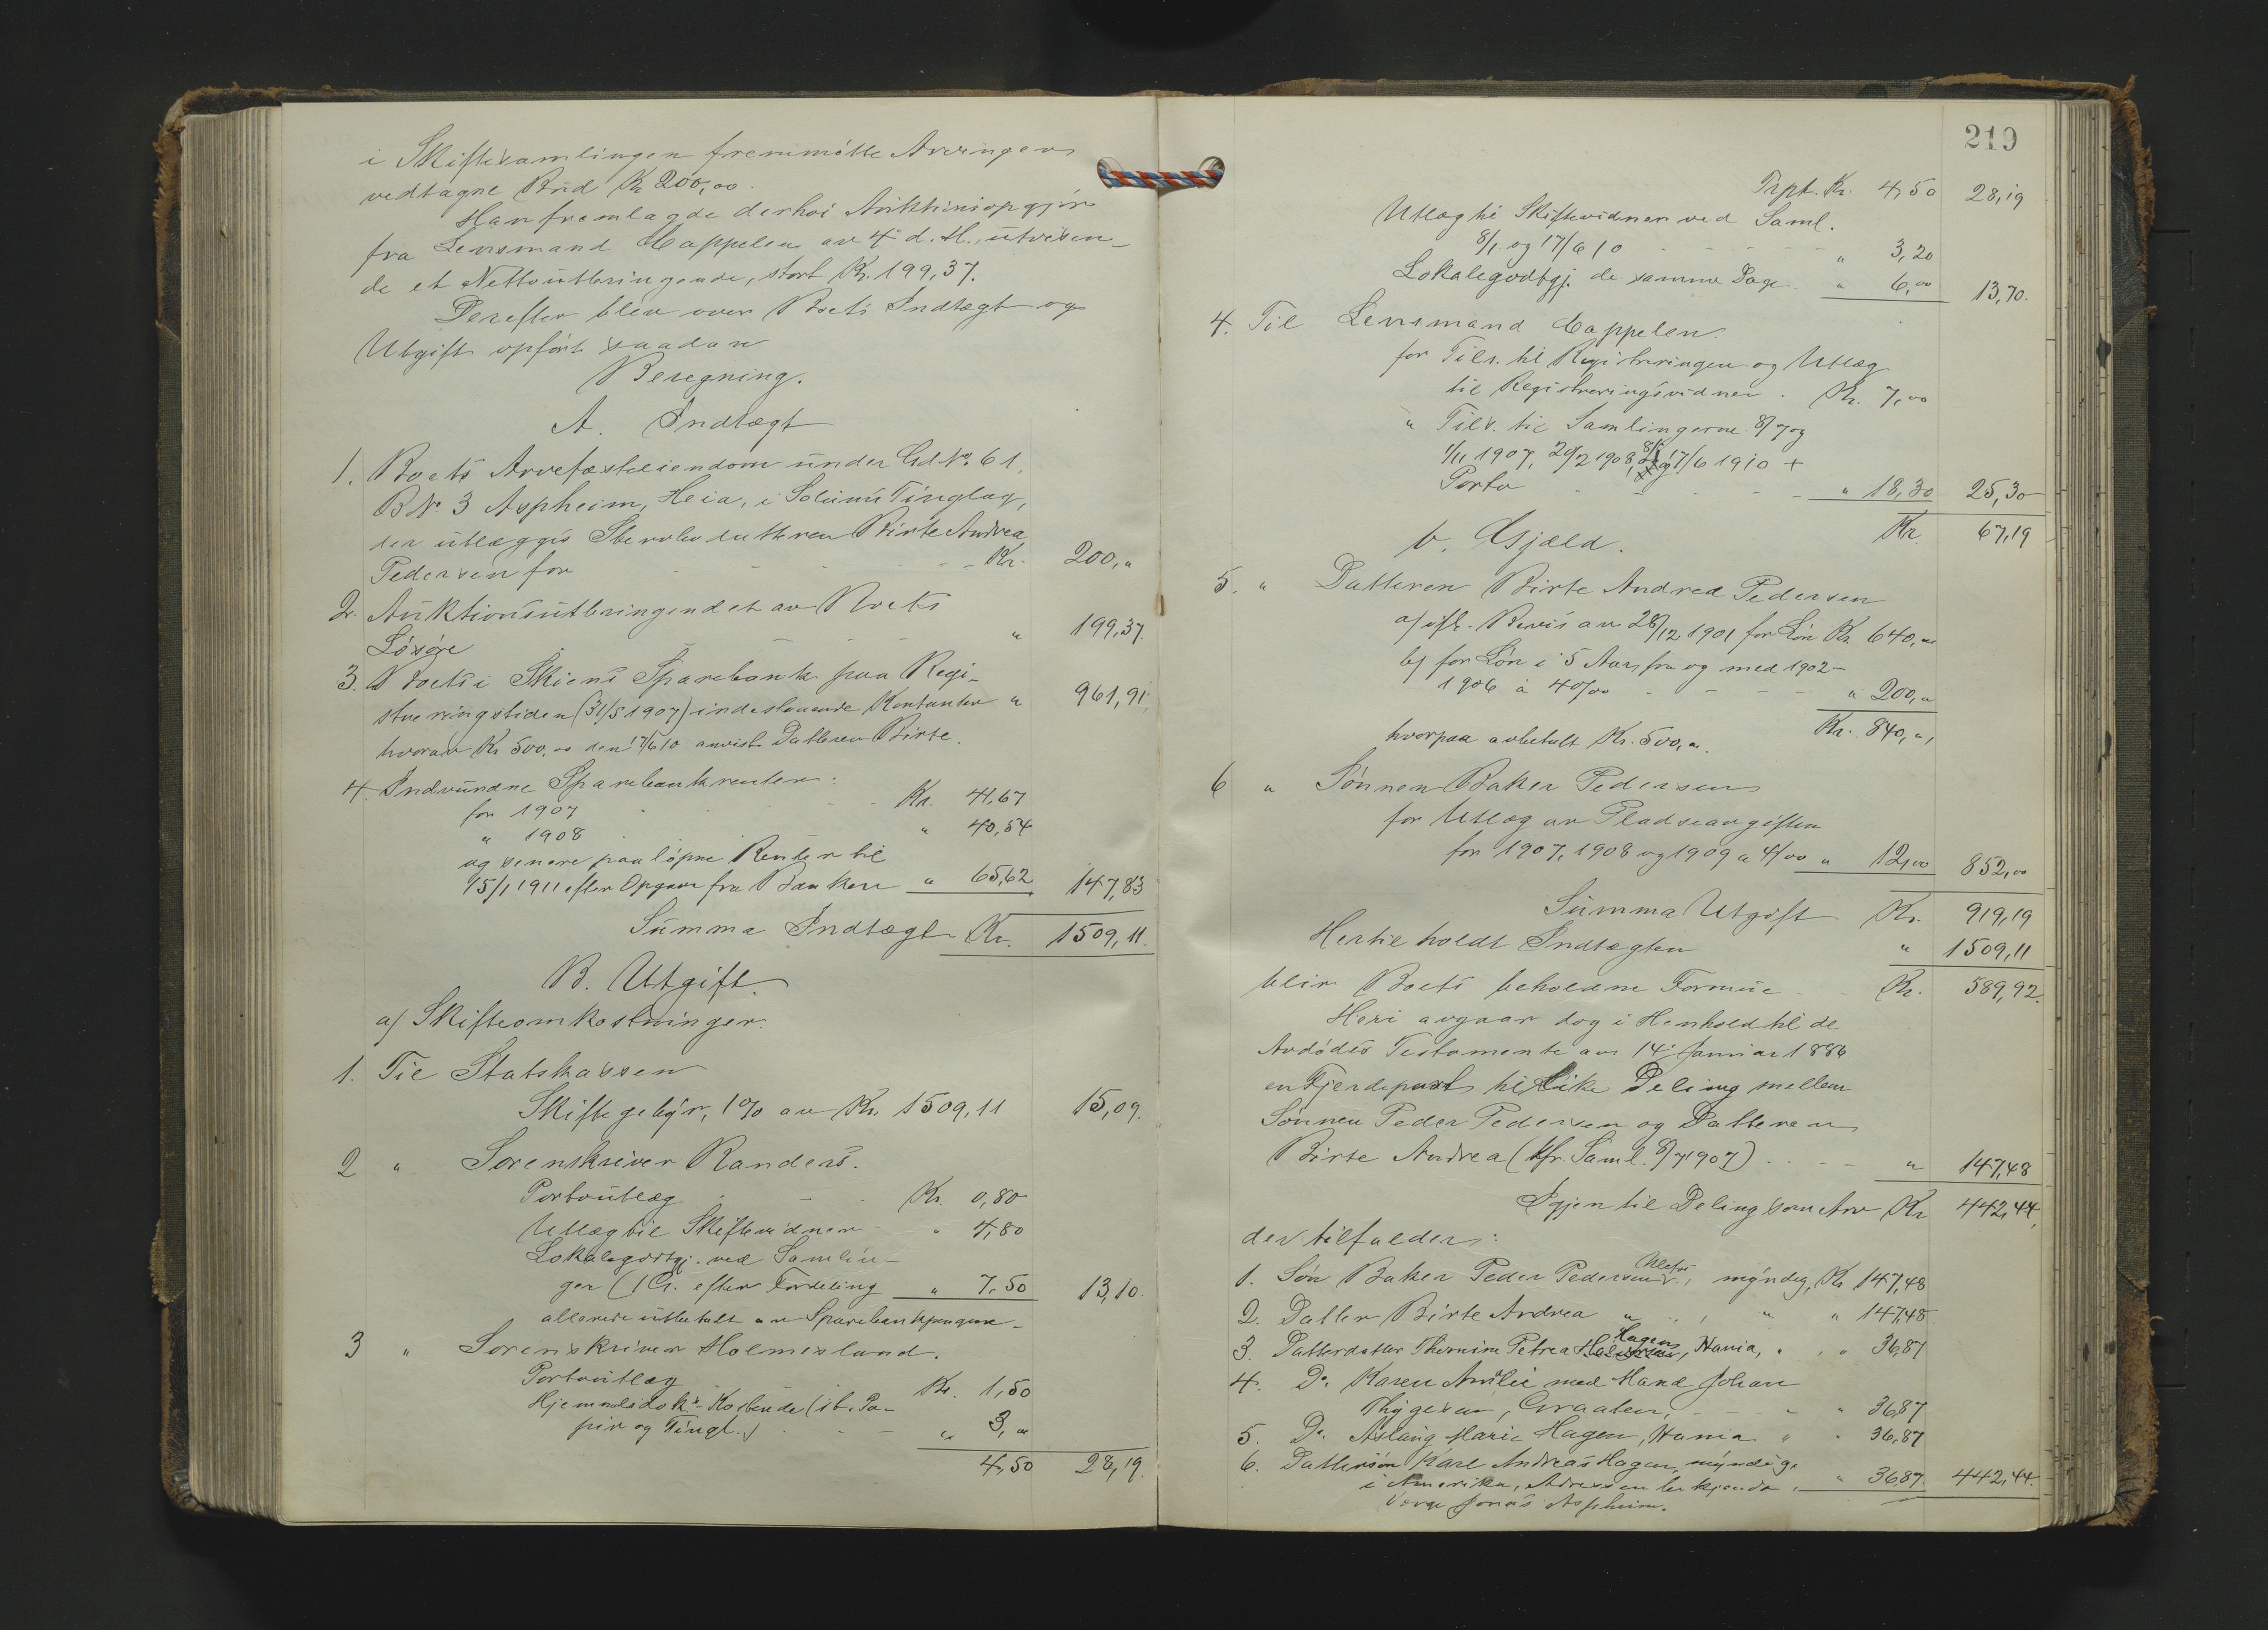 i Skiftesamlingen fremmötte Arvingers
vedtagne Bud Kr 200,00.
Han fremlagde derhos Auktionsopgjör
fra Lensmand Cappelen av 4de d. M., utvisen-
de et Nettoutbringende, stort Kr. 199,37.
Derefter blev over Boets Indtægt og
Utgift opfört saadan
Beregning.
A. Indtægt
1. Boets Arvefæsteeiendom under Gd No. 61,
B No. 3 Aspheim, Heia, i Solums Tinglag,
der utlægges Stervbodatteren Birte Andrea
Pedersen for - - - - Kr. 200,"
2. Auktionsutbringendet av Boets
Lösöre - - - " 199,37.
3. Boets i Skiens Sparebank paa Regi-
streringstiden (31/5 1907) indestaaende Kontanter " 961,91,
hvorav Kr. 500,00 den 17/6 10 anvist Datteren Birte.
4. Indvundne Sparebankrenter:
for 1907 - - - Kr. 41,67
" 1908 " 40,54
og senere paalöpne Renter til
15/1 1911 efter Opgave fra Banken " 65,62 147,83
Summa Indtægt Kr. 1509,11.
B. Utgift.
a) Skifteomkostninger.
1. Til Statskassen
Skiftegebyr, 1% av Kr. 1509,11 15,09.
2 " Sorenskriver Randers.
Portoutlæg - - Kr. 0,80
Utlæg til Skiftevidner - " 4,80
Lokalegodtgj. ved Samlin-
ger (1 Cr. efter Fordeling " 7,50 13,10.
allerede utbetalt av Sparebankpengene -
3 " Sorenskriver Holmesland.
Portoutlæg Kr. 1,50
Hjemmelsdok's Kostende (st. Pa-
pir og Tingl.) - - - " 3,00
4,50 28,19.
219
Trpt. Kr. 4,50 28,19
Utlæg til Skiftevidner ved Saml.
8/1 og 17/6 10 - - - - " 3,20
Lokalegodtgj. de samme Dage " 6,00 13,70.
4. Til Lensmand Cappelen.
for Tilv. til Registreringen og Utlæg
til Registreringsvidner. Kr. 7,00
" Tilv. til Samlingerne 8/7 og
1/11 1907, 20/2 1908, 8/1 og 17/6 1910 +
Porto - - - - " 18,30 25,30
Kr. 67,19
b. Gjæld.
5. " Datteren Birte Andrea Pedersen
a) iflg. Bevis av 28/12 1901 for Lön Kr 640,"
b) for Lön i 5 Aar, fra og med 1902-
1906 à 40/00 - - - - " 200,"
Kr. 840,",
hvorpaa avbetalt Kr. 500,".
6 " Sönnen Baker Pedersen
for Utlæg av Pladseavgiften
for 1907, 1908 og 1909 a 4/00 " 12,00 852,00
Summa Utgift Kr. 919,19
Hertil holdt Indtægten " 1509,11
blir Boets beholdne Formue - Kr. 589,92.
Heri avgaar dog i Henhold til de
Avdödes Testamente av 14de Januar 1886
en Fjerdepart til like Deling mellem
Sönnen Peder Pedersen og Datteren
Birte Andrea (kfr. Saml. 8/7 1907) . . - - " 147,48
Igjen til Deling som Arv Kr 442,44,
der tilfalder:
1. Sön Baker Peder Pedersen Ulefos, myndig, Kr 147,48
2. Datter Birte Andrea " , " " 147,48
3. Datterdatter Thomine Petrea Hagen, Hania, " , " 36,87
4. Do. Karen Amalie med Mand Johan
Thygesen, Graaten, - - - " 36,87
5. Do. Aslaug Marie Hagen, Hania " " 36,87
6. Dattersön Karl Andreas Hagen, myndig,
i Amerika, Adressen bekjendt, " 36,87 442,44.
Verge Jonas Aspheim.